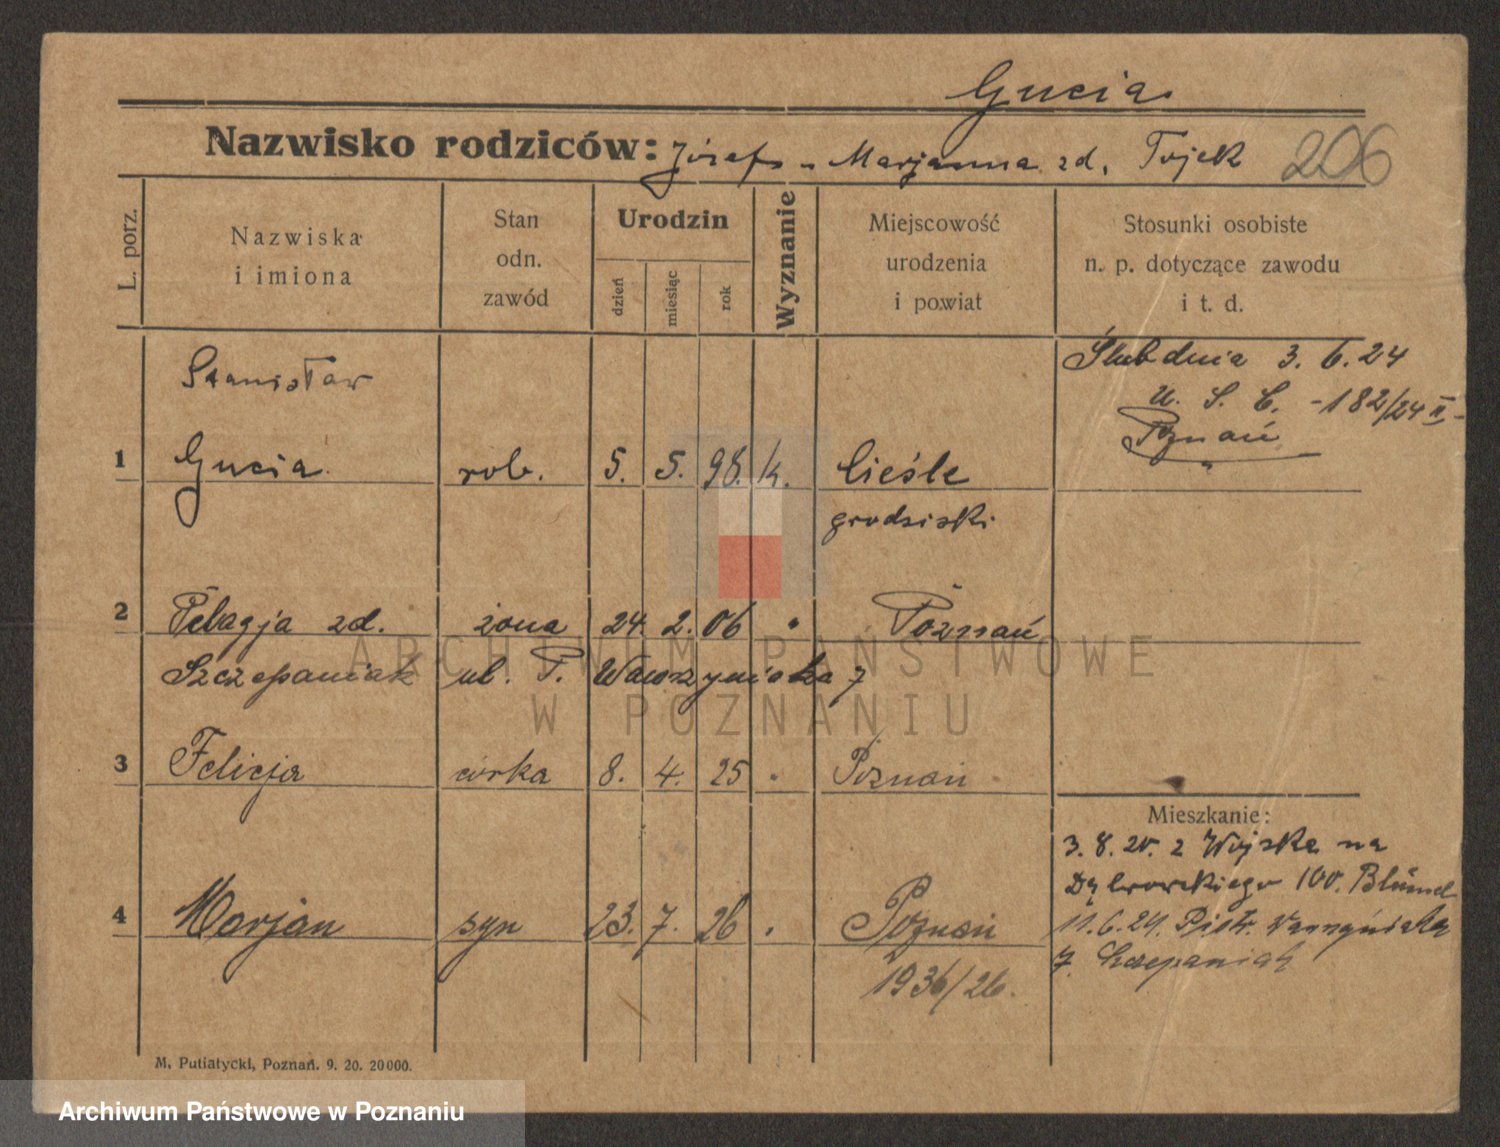 Gucia
Nazwisko rodziców: Józef - Marjanna zd. Tojek 206
L. porz.
Nazwiska i imiona
Stan odn. zawód
Urodzin
dzień
miesiąc
rok
Wyznanie
Miejscowość urodzenia i powiat
Stosunki osobiste n. p. dotyczące zawodu i t. d.
Stanisław
Ślub dnia 3. 6. 24
U. S. C. -182/24 II-
Poznań
1 Gucia rob. 5. 5. 98. k. Cieśle
grodziski
2 Pelagja zd. żona 24. 2. 06 " Poznań
Szczepaniak ul. P. Wawrzyniaka 7
3 Felicja córka 8. 4. 25 " Poznań
Mieszkanie:
3. 8. 20. z Wojska na
Dąbrowskiego 100. Blümel
4 Marjan syn 23. 7. 26 " Poznań
11. 6. 24. Piotr. Wawrzyniaka
7. Szczepaniak
1936/26.
M. Putiatycki, Poznań. 9. 20. 20000.
ARCHIWUM PAŃSTWOWE
W POZNANIU
Archiwum Państwowe w Poznaniu